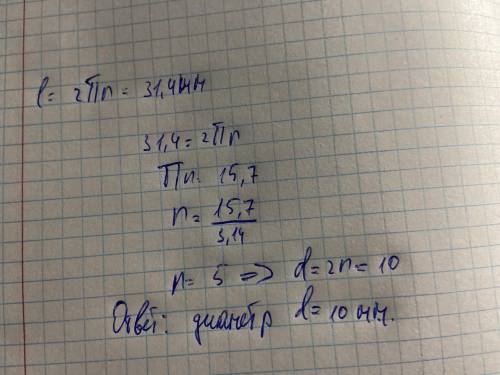 l = 2Πr = 31,4мм
31,4 = 2Πr
Πr = 15,7
r = 15,7/3,14
r = 5 => d = 2r = 10
Ответ: диаметр d = 10 мм.